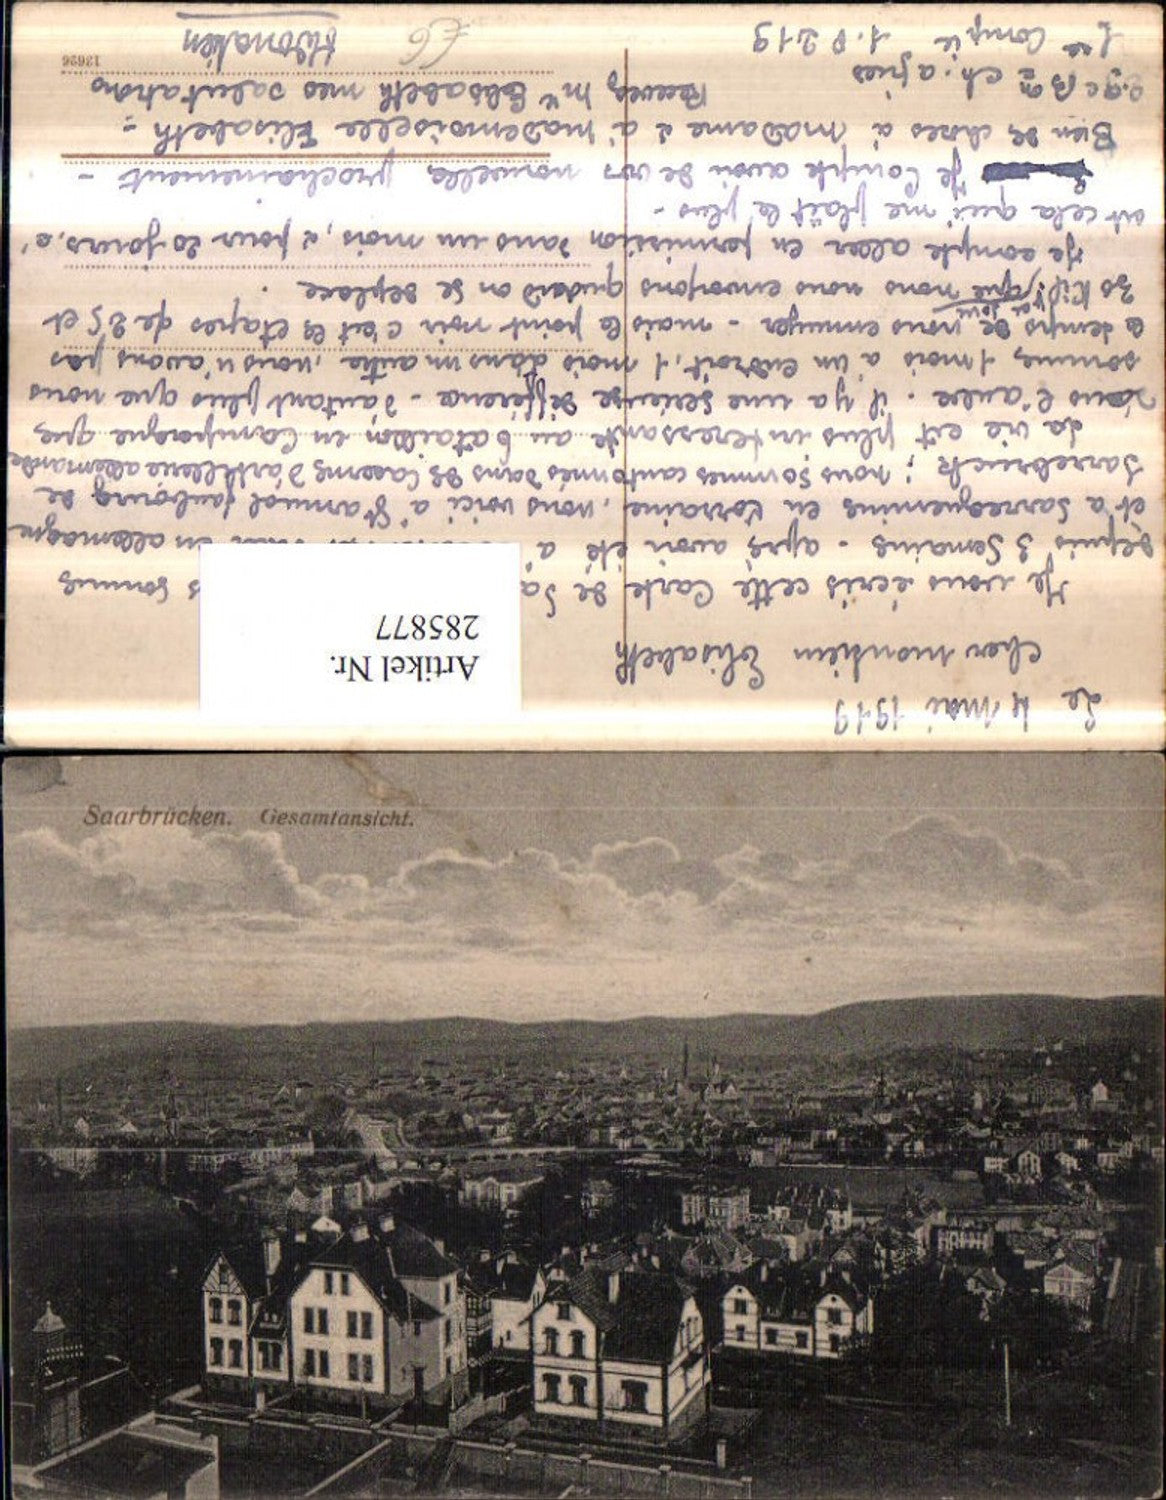 Le 4 Mai 1919
Cher monsieur Elisabeth
Je vous écris cette carte de Sa s sommes
depuis 3 semaines - après avoir été à en allemagne
et a Sarreguemines en Lorraine, nous voici à St Arnual faubourg de
Sarrebruck ; nous sommes cantonnés dans des casernes d'artillerie allemande
La vie est plus interessante au bataillon, en campagne que
dans l'autre. il y a une serieuse différence - d'autant plus que nous
sommes 1 mois à un endroit, 1 mois dans un autre, nous n'avons pas
le temps de nous ennuyer - mais le point noir c'est les etapes de 25 et
30 Kil. par jour que nous envoyons quand on se deplace .
Je compte aller en permission dans un mois, et pour 20 jours, c'
est cela qui me plaît le plus -
Je compte avoir de vos nouvelles prochainement -
Bien de choses à Madame et à Mademoiselle Elisabeth -
Recevez Mr Elisabeth mes salutations
ch. à pies
1re Compie S.P 219
€6
13626
Artikel Nr.
285877
Saarbrücken. Gesamtansicht.